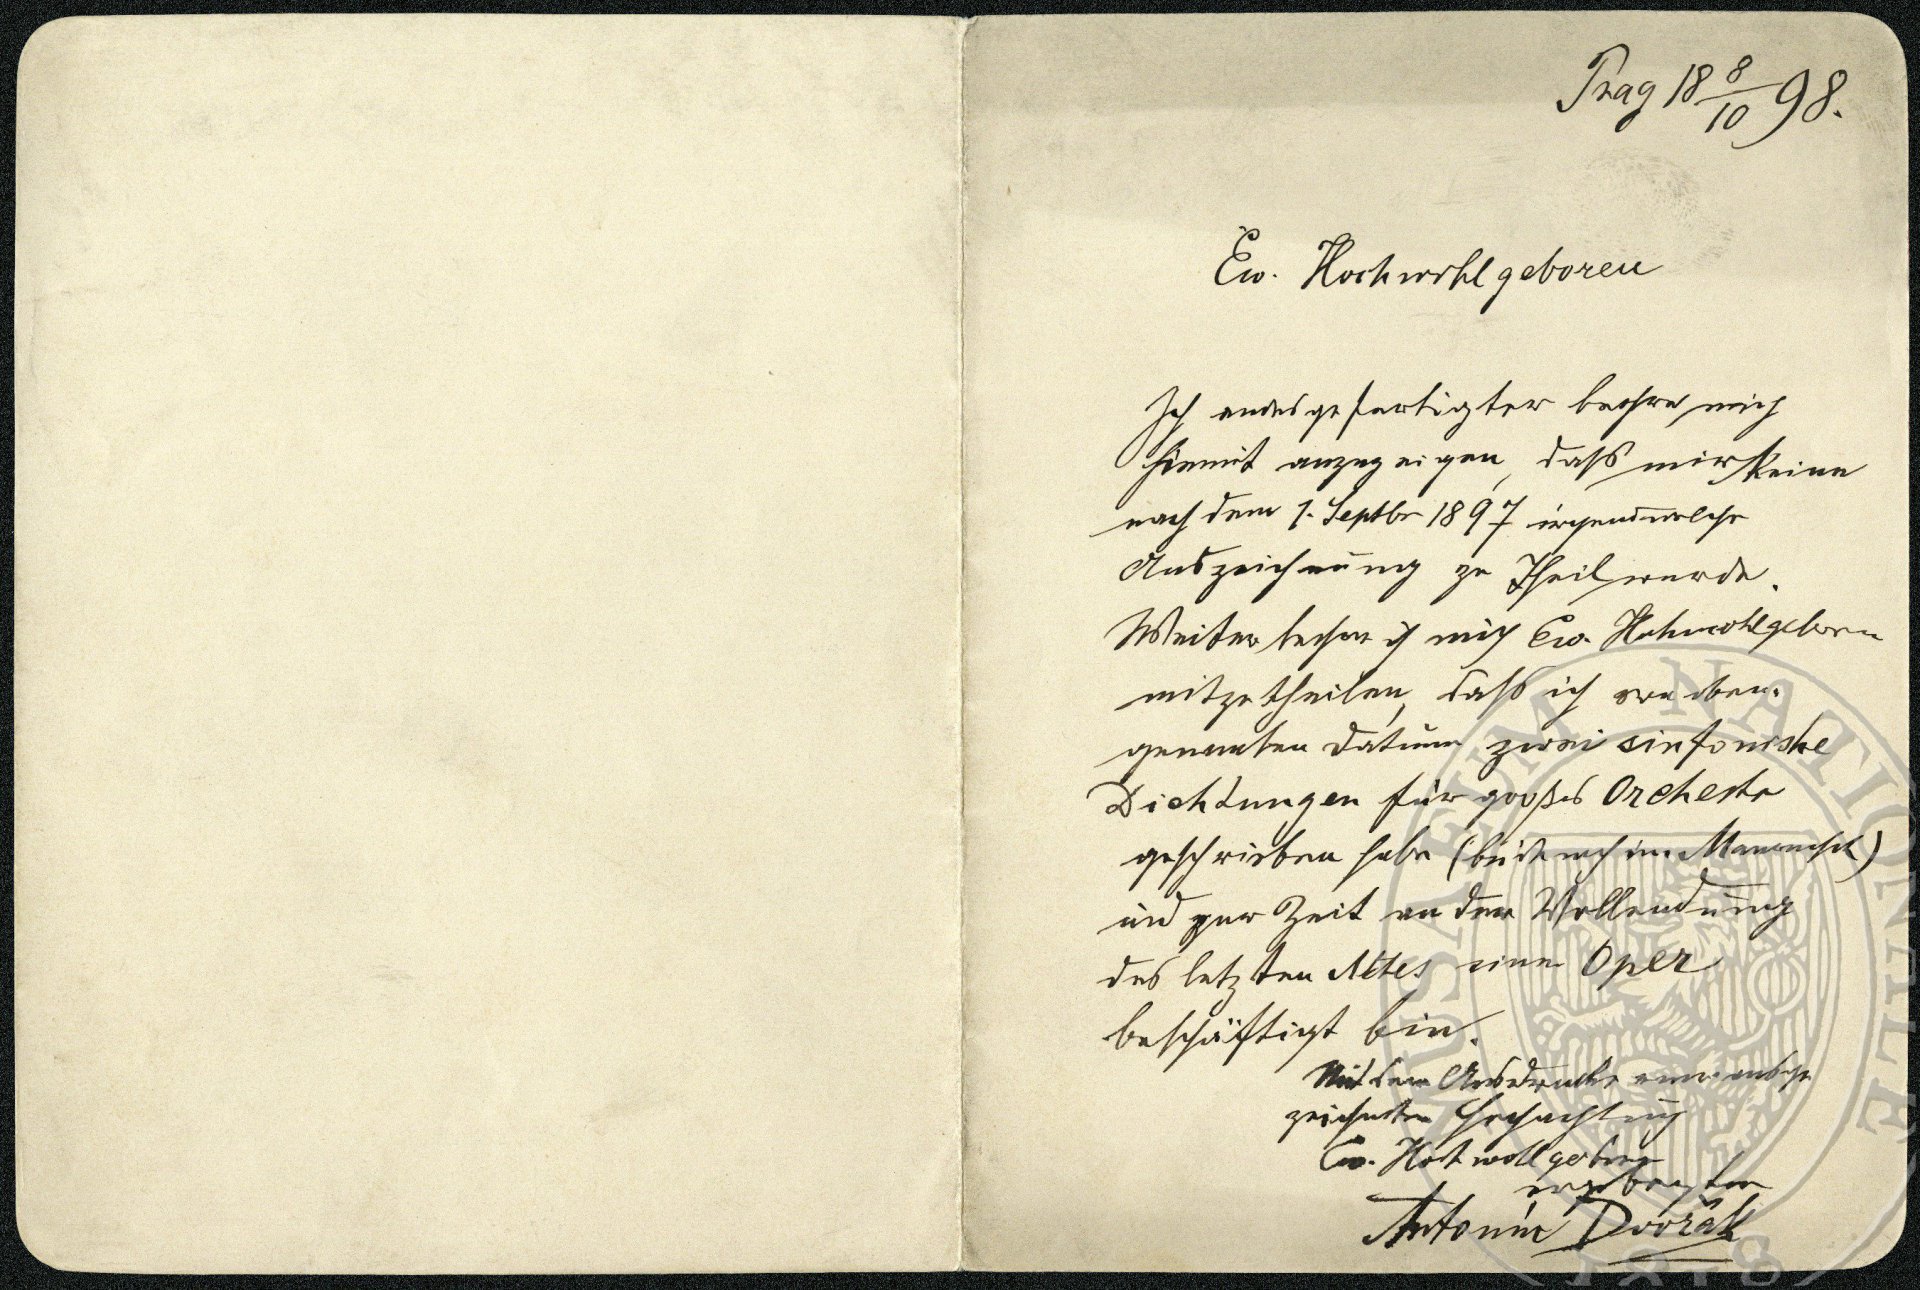 Prag 18 8/10 98.
Ew. Hochwohlgeboren
Ich endesgefertigter beehre mich
hiemit anzuzeigen, dass mir keine
nach dem 1. Septbr 1897 irgendwelche
Auszeichnung zu Theil wurde.
Weiter beehre ich mich Ew. Hochwohlgeboren
mitzutheilen, dass ich oben-
genannten Datum zwei sinfonische
Dichtungen für großes Orchester
geschrieben habe (beide noch im Manuscript)
und zur Zeit an der Vollendung
des letzten Aktes einer Oper
beschäftigt bin.
Mit dem Ausdrucke ausge
zeichneten Hochachtung
Ew. Hochwohlgeboren
ergebenster
Antonín Dvořák
MUSAEUM NATIONALE
1818